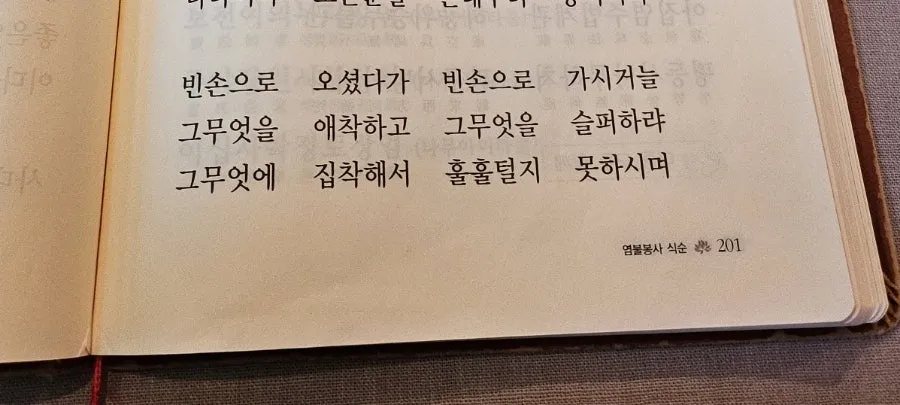 빈손으로 오셨다가 빈손으로 가시거늘
그무엇을 애착하고 그무엇을 슬퍼하랴
그무엇에 집착해서 훌훌털지 못하시며
염불봉사 식순 201